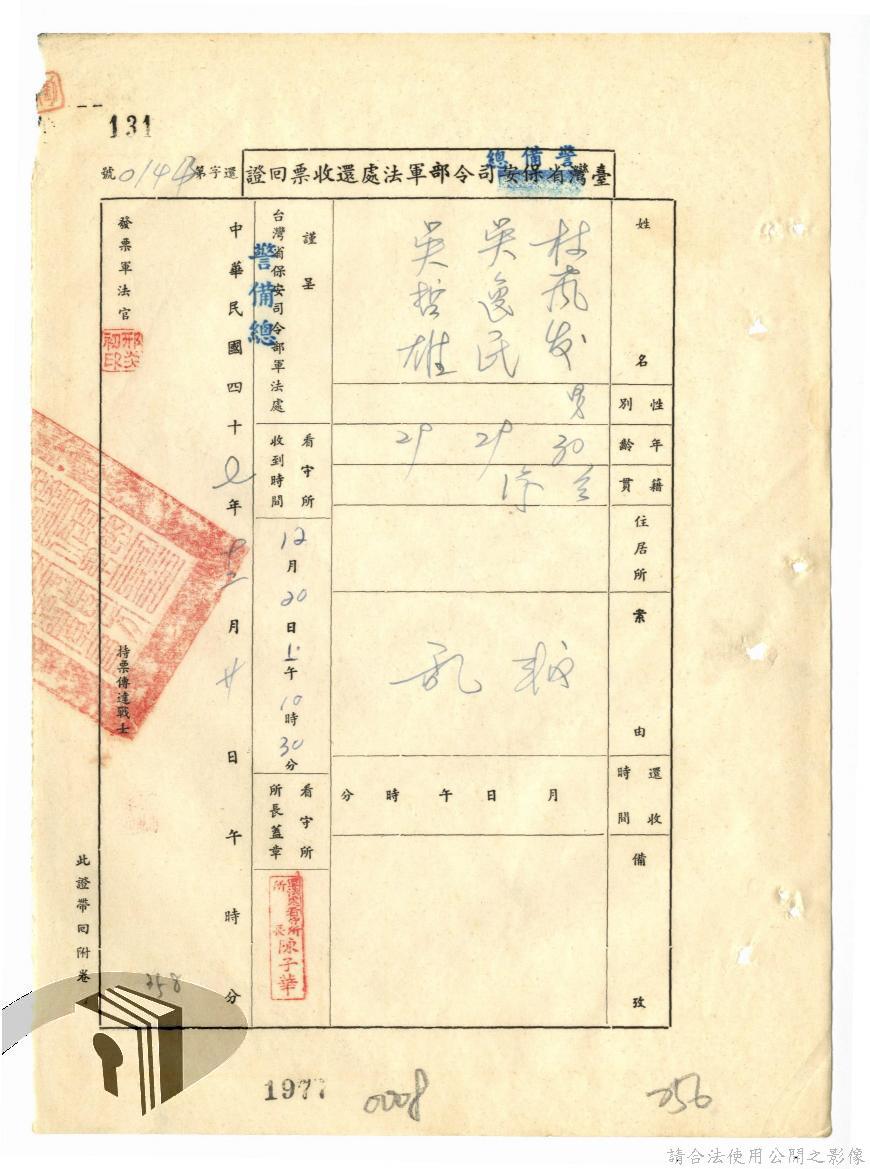 131
臺灣省保安司令部軍法處還收票回證
警備總
還字第0144號
姓名
吳逸民
吳哲雄
性別
男
年齡
30
29
29
籍貫
住居所
案由
叛亂
還收時間
月 日 午 時 分
備攷
謹呈
台灣省保安司令部軍法處
警備總
看守所收到時間
12月20日上午10時30分
看守所所長蓋章
軍法處看守所所長 陳子華
中華民國四十七年十二月廿日 午 時 分
發票軍法官
持票傳達戰士
此證帶回附卷
358
1977
0008
256
請合法使用公開之影像